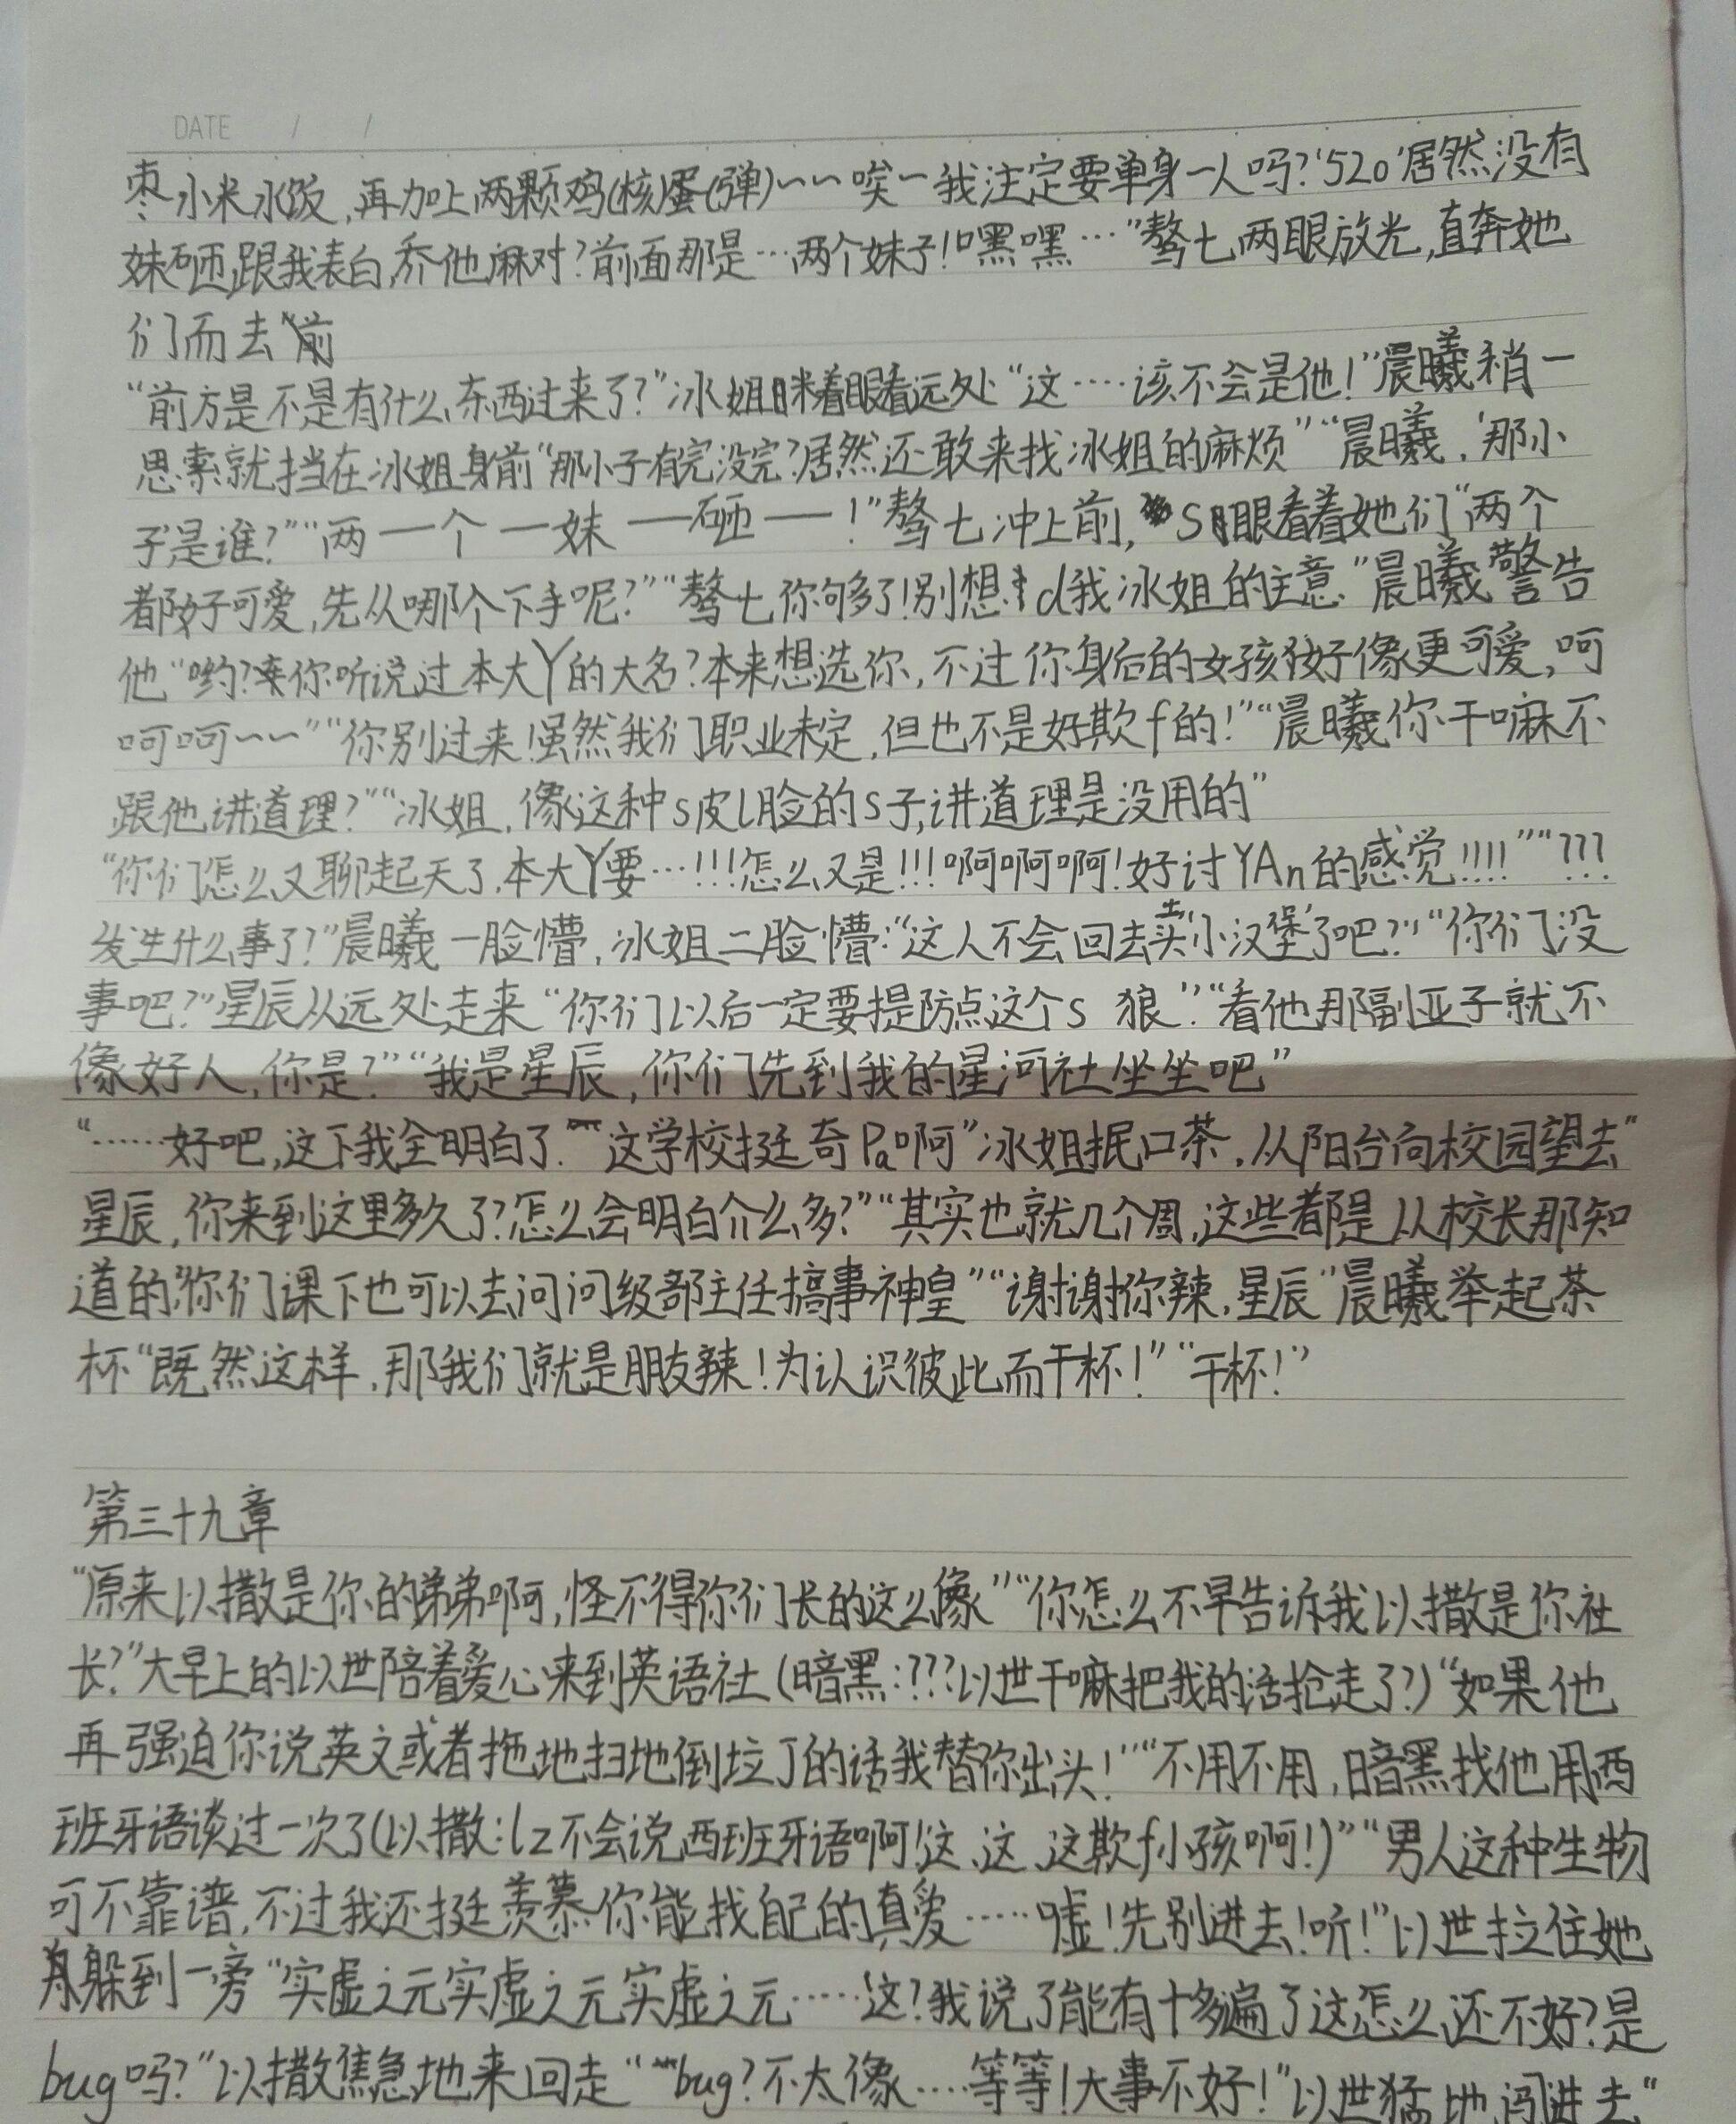 DATE / /
枣小米水饭,再加上两颗鸡(核)蛋(弹)~~唉~我注定要单身一人吗?‘520’居然没有
妹砸跟我表白,乔他麻对?前面那是…两个妹子!嘿嘿…”骜七两眼放光,直奔她
们而去“前
“前方是不是有什么东西过来了?”冰姐眯着眼看远处“这……该不会是他!”晨曦稍一
思索就挡在冰姐身前“那小子有完没完?居然还敢来找冰姐的麻烦”“晨曦,‘那小
子’是谁?”“两一个一妹一砸一!”骜七冲上前,S眼看着她们“两个
都好可爱,先从哪个下手呢?”“骜七你够了!别想d我冰姐的主意”晨曦警告
他“哟?你听说过本大丫的大名?本来想选你,不过你身后的女孩好像更可爱,呵
呵呵~~”“你别过来!虽然我们职业未定,但也不是好欺f的!”“晨曦你干嘛不
跟他讲道理?”“冰姐,像这种s皮l脸的s子,讲道理是没用的”
“你们怎么又聊起天了,本大丫要…!!!怎么又是!!!啊啊啊!好讨YAn的感觉!!!!”“???
发生什么事了?”晨曦一脸懵,冰姐二脸懵:“这人不会回去卖‘小汉堡’了吧?”“你们没
事吧?”星辰从远处走来“你们以后一定要提防点这个s 狼”“看他那副亚子就不
像好人,你是?”“我是星辰,你们先到我的星河社坐坐吧”
“……好吧,这下我全明白了”“这学校挺奇Pa啊”冰姐抿口茶,从阳台向校园望去“
星辰,你来到这里多久了?怎么会明白介么多?”“其实也就几个周,这些都是从校长那知
道的,你们课下也可以去问问级部主任搞事神皇”“谢谢你辣,星辰”晨曦举起茶
杯“既然这样,那我们就是朋友辣!为认识彼此而干杯!”“干杯!”
第三十九章
“原来以撒是你的弟弟啊,怪不得你们长的这么像”“你怎么不早告诉我以撒是你社
长?”大早上的以世陪着爱心来到英语社(暗黑:???以世干嘛把我的活抢走了?)“如果他
再强迫你说英文或者拖地扫地倒垃J的话我替你出头!”“不用不用,暗黑找他用西
班牙语谈过一次了(以撒:lz不会说西班牙语啊!这、这、这欺f小孩啊!)”“男人这种生物
可不靠谱,不过我还挺羡慕你能找自己的真爱……嘘!先别进去!听!”以世拉住她
躲到一旁“实虚之元实虚之元实虚之元……这?我说了能有十多遍了这怎么还不好?是
bug吗?”以撒焦急地来回走“bug?不太像……等等!大事不好!”以世猛地闯进去“